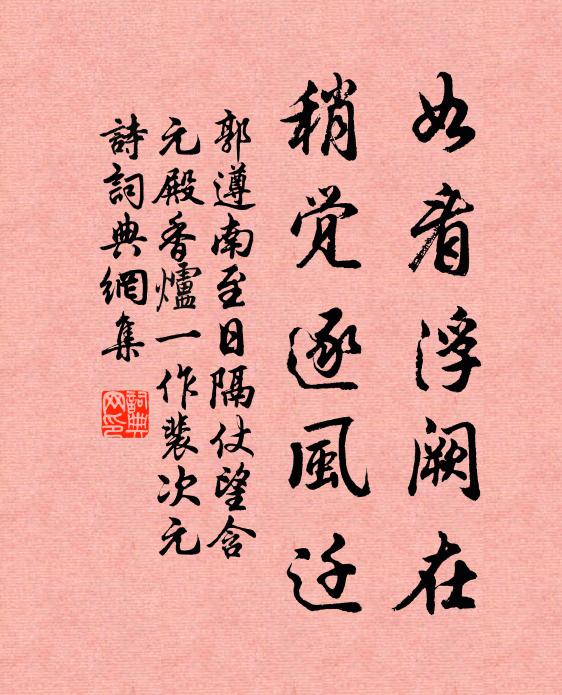 如看浮阙在
稍觉逐風迁
郭遵南至日隔仗望含
元殿香爐一作裴次元
詩詞典網集
詞典网印